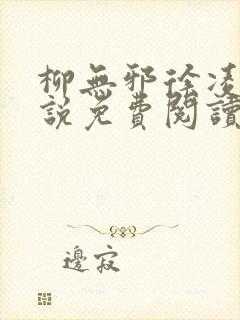 柳無邪徐凌
說免費閱讀
邊寂